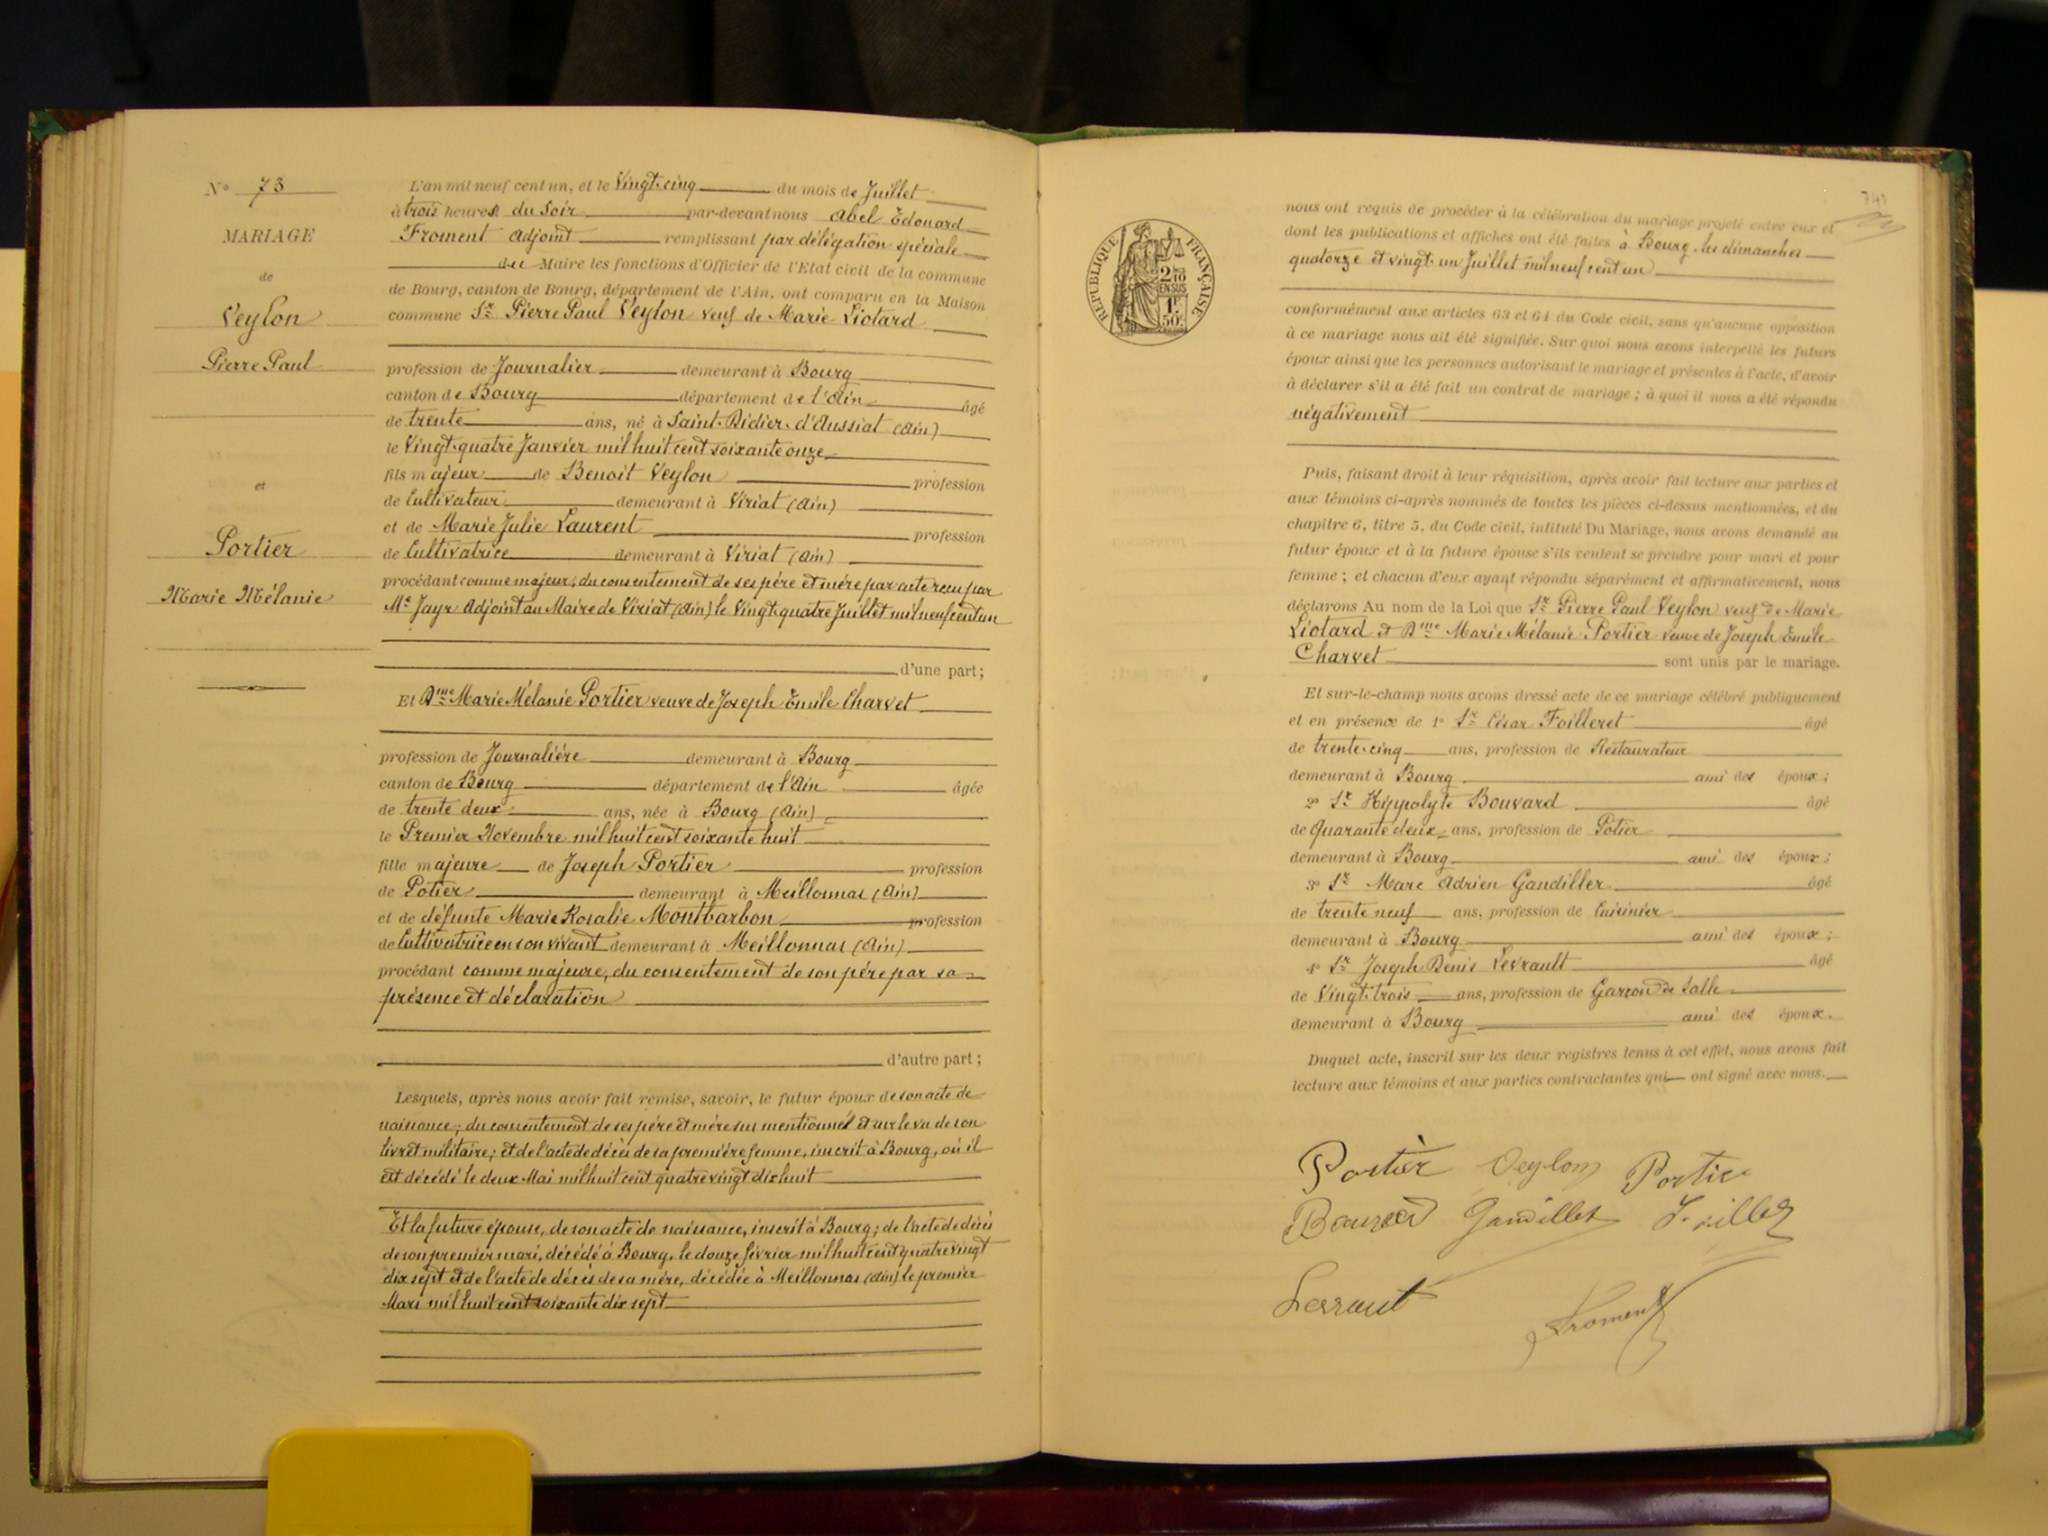 N° 73
MARIAGE
de
Veylon
Pierre Paul
et
Portier
Marie Mélanie
L'an mil neuf cent un, et le Vingt-cinq du mois de Juillet
à trois heures du Soir par-devant nous Abel Edouard
Froment Adjoint remplissant par délégation spéciale
du Maire les fonctions d'Officier de l'Etat civil de la commune
de Bourg, canton de Bourg, département de l'Ain, ont comparu en la Maison
commune Sr Pierre Paul Veylon veuf de Marie Liotard
profession de Journalier demeurant à Bourg
canton de Bourg département de l'Ain âgé
de trente ans, né à Saint-Didier-d'Aussiat (Ain)
le Vingt-quatre Janvier mil huit cent soixante onze
fils majeur de Benoit Veylon profession
de Cultivateur demeurant à Viriat (Ain)
et de Marie Julie Laurent profession
de Cultivatrice demeurant à Viriat (Ain)
procédant comme majeur, du consentement de ses père et mère par acte reçu par
Me Jayr Adjoint au Maire de Viriat (Ain) le Vingt-quatre Juillet mil neuf cent un
d'une part;
Et Dme Marie Mélanie Portier veuve de Joseph Emile Charvet
profession de Journalière demeurant à Bourg
canton de Bourg département de l'Ain âgée
de trente deux ans, née à Bourg (Ain)
le Premier Novembre mil huit cent soixante huit
fille majeure de Joseph Portier profession
de Potier demeurant à Meillonnas (Ain)
et de défunte Marie Rosalie Montbarbon profession
de Cultivatrice en son vivant demeurant à Meillonnas (Ain)
procédant comme majeure, du consentement de son père par sa
présence et déclaration
d'autre part;
Lesquels, après nous avoir fait remise, savoir, le futur époux de son acte de
naissance; du consentement de ses père et mère sus mentionné et sur le vu de son
livret militaire; et de l'acte de décès de sa première femme, inscrit à Bourg, où il
est décédé le deux Mai mil huit cent quatre vingt dix huit
Et la future épouse, de son acte de naissance, inscrit à Bourg; de l'acte de décès
de son premier mari, décédé à Bourg, le douze février mil huit cent quatre vingt
dix sept et de l'acte de décès de sa mère, décédée à Meillonnas (Ain) le premier
Mars mil huit cent soixante dix sept
RÉPUBLIQUE FRANÇAISE
2/10
EN SUS
1F.
50c
nous ont requis de procéder à la célébration du mariage projeté entre eux et
dont les publications et affiches ont été faites à Bourg les dimanches
quatorze et vingt-un Juillet mil neuf cent un
conformément aux articles 63 et 64 du Code civil, sans qu'aucune opposition
à ce mariage nous ait été signifiée. Sur quoi nous avons interpellé les futurs
époux ainsi que les personnes autorisant le mariage et présentes à l'acte, d'avoir
à déclarer s'il a été fait un contrat de mariage; à quoi il nous a été répondu
négativement
Puis, faisant droit à leur réquisition, après avoir fait lecture aux parties et
aux témoins ci-après nommés de toutes les pièces ci-dessus mentionnées, et du
chapitre 6, titre 5, du Code civil, intitulé Du Mariage, nous avons demandé au
futur époux et à la future épouse s'ils veulent se prendre pour mari et pour
femme; et chacun d'eux ayant répondu séparément et affirmativement, nous
déclarons Au nom de la Loi que Sr Pierre Paul Veylon veuf de Marie
Liotard et Dme Marie Mélanie Portier veuve de Joseph Emile
Charvet sont unis par le mariage.
Et sur-le-champ nous avons dressé acte de ce mariage célébré publiquement
et en présence de 1° Sr César Foilleret âgé
de trente-cinq ans, profession de Restaurateur
demeurant à Bourg ami des époux;
2° Sr Hyppolyte Bouvard âgé
de Quarante deux ans, profession de Potier
demeurant à Bourg ami des époux;
3° Sr Marc Adrien Gandiller âgé
de trente neuf ans, profession de Cuisinier
demeurant à Bourg ami des époux;
4° Sr Joseph Denis Levrault âgé
de Vingt-trois ans, profession de Garçon de Salle
demeurant à Bourg ami des époux.
Duquel acte, inscrit sur les deux registres tenus à cet effet, nous avons fait
lecture aux témoins et aux parties contractantes qui ont signé avec nous.
Portier Veylon Portier
Bouvard Gandillet
Levraut Froment